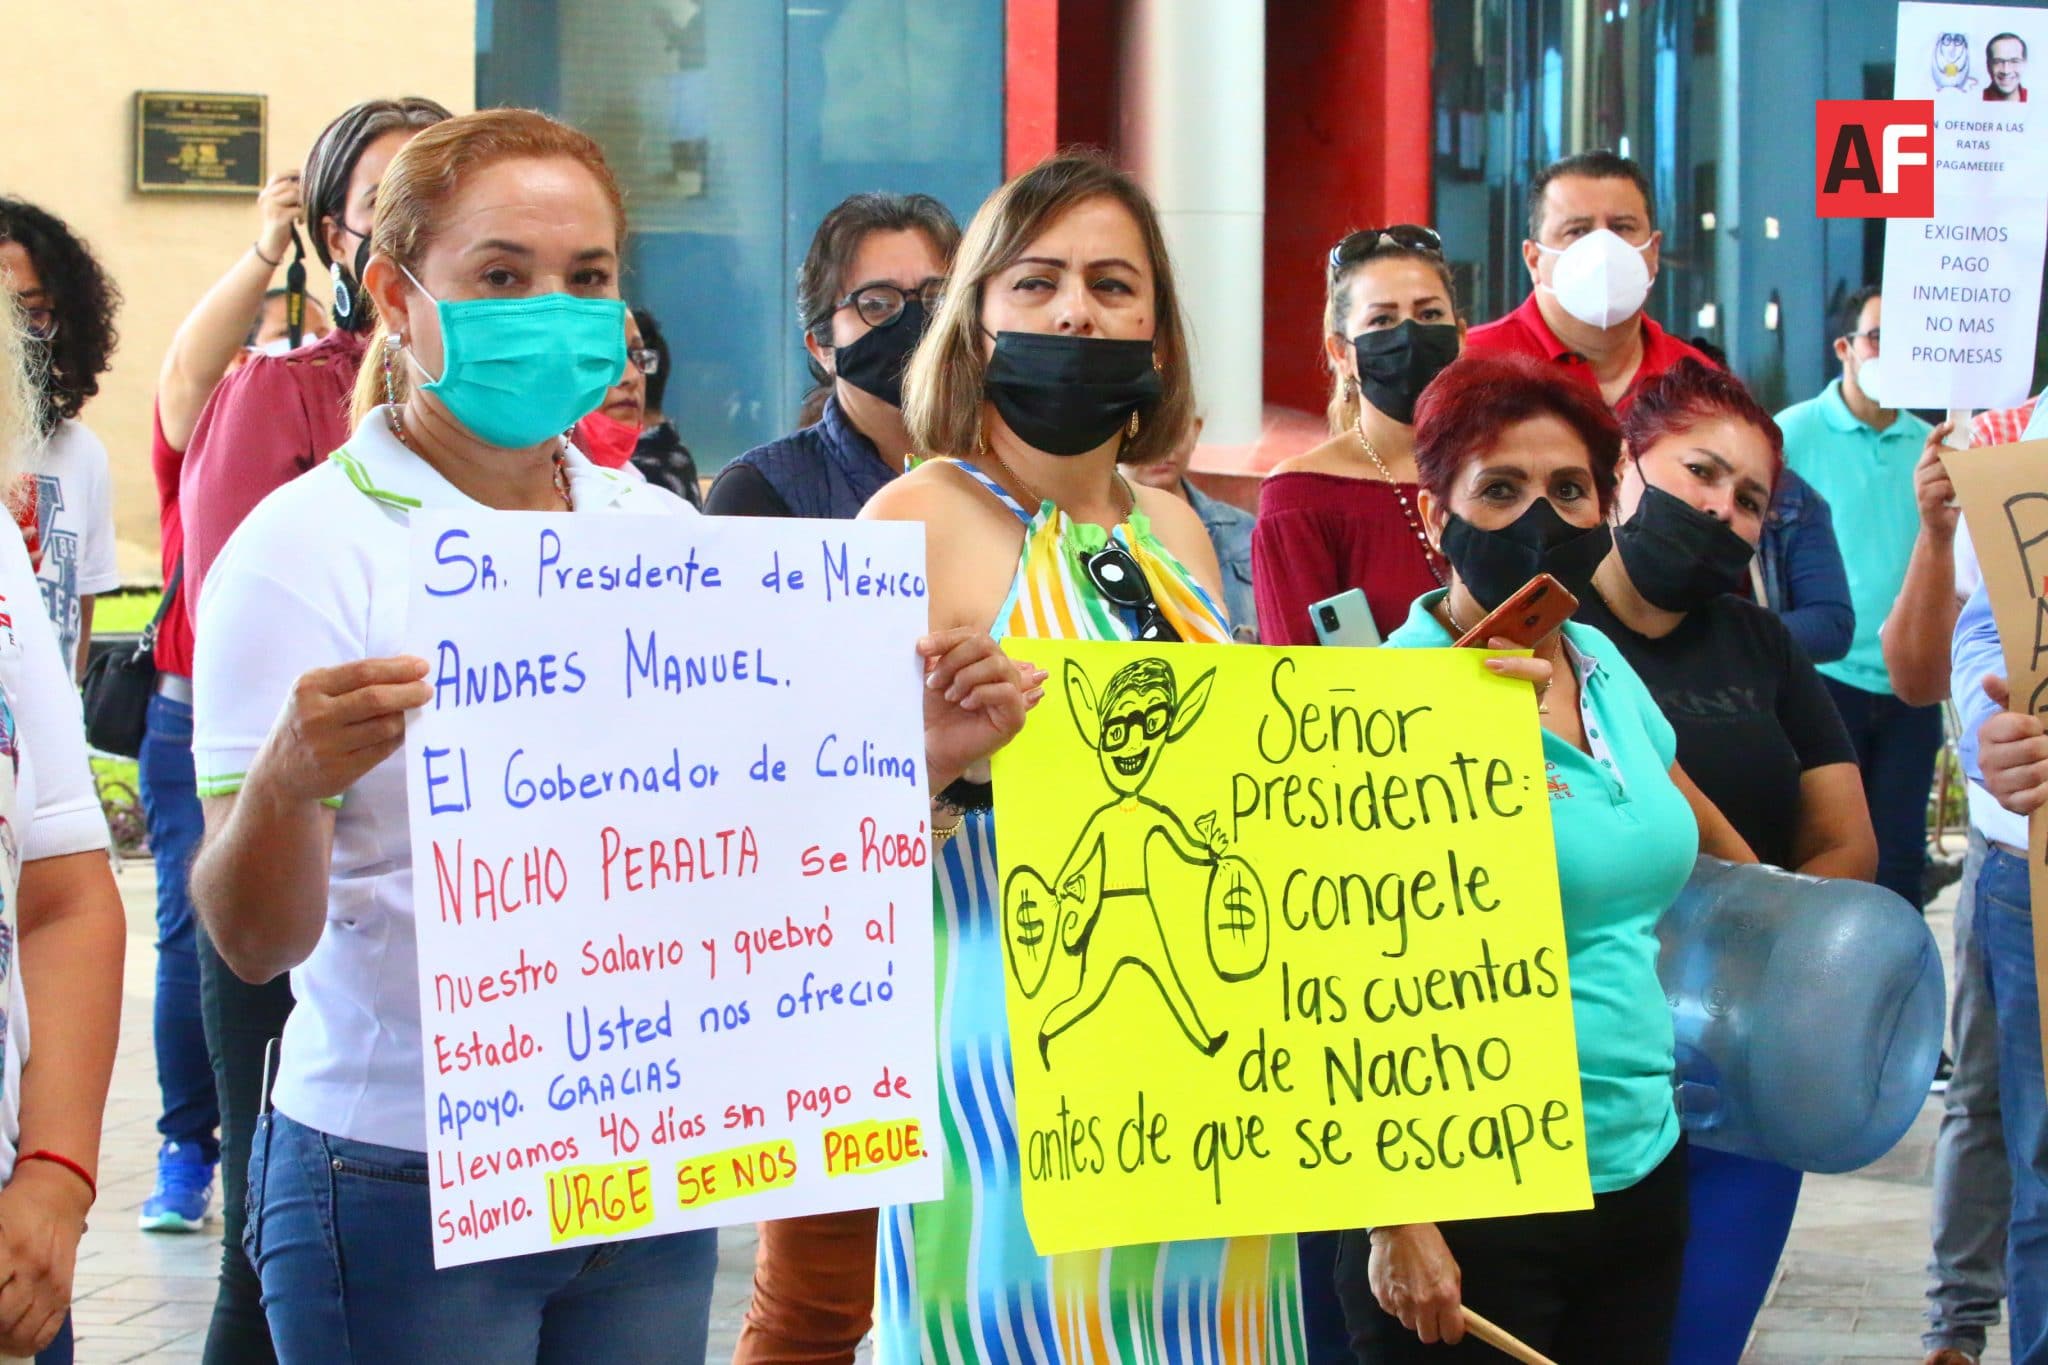 SR. Presidente de México
ANDRES MANUEL.
El Gobernador de Colima
NACHO PERALTA se ROBÓ
nuestro salario y quebró al
Estado. Usted nos ofreció
Apoyo. GRACIAS
Llevamos 40 días sin pago de
salario. URGE SE NOS PAGUE.
Señor
presidente:
congele
las cuentas
de Nacho
antes de que se escape
$
$
OFENDER A LAS
RATAS
PAGAMEEEEE
EXIGIMOS
PAGO
INMEDIATO
NO MAS
PROMESAS
AF